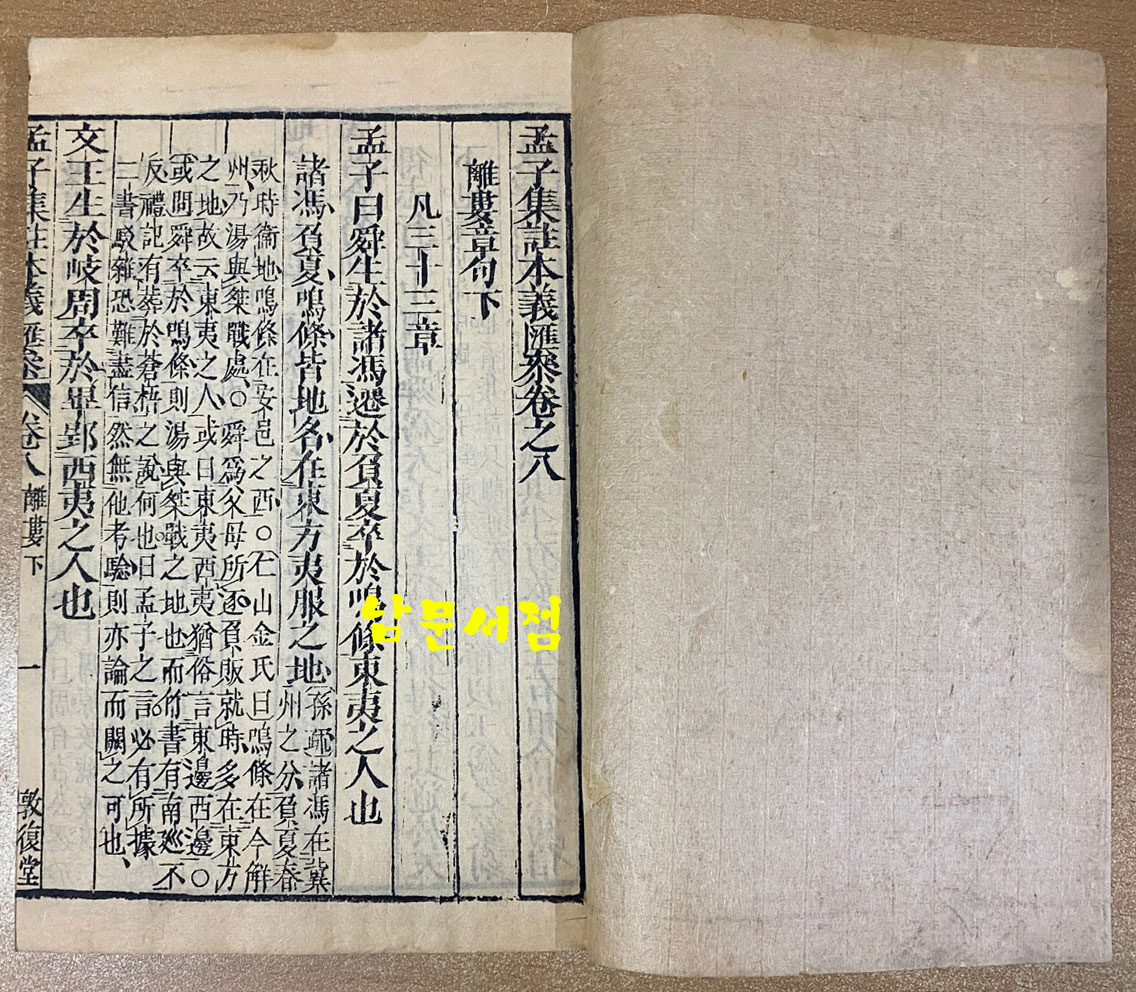 孟子集註本義匯參卷之八
離婁章句下
凡三十三章
孟子曰舜生於諸馮遷於負夏卒於鳴條東夷之人也
諸馮負夏鳴條皆地名在東方夷服之地
孫疏諸馮在冀
州之分負夏春
秋時衞地鳴條在安邑之西○仁山金氏曰鳴條在今解
州乃湯與桀戰處○舜爲父母所逐負販就時多在東方
之地故云東夷之人或曰東夷西夷猶俗言東邊西邊○
或問舜卒於鳴條則湯與桀戰之地也而竹書有南廵不
反禮記有葬於蒼梧之說何也曰孟子之言必有所據
二書駁雜恐難盡信然無他考驗則亦論而闕之可也
文王生於岐周卒於畢郢西夷之人也
孟子集註本義匯參 卷八 離婁下 一 敦復堂
남문서점